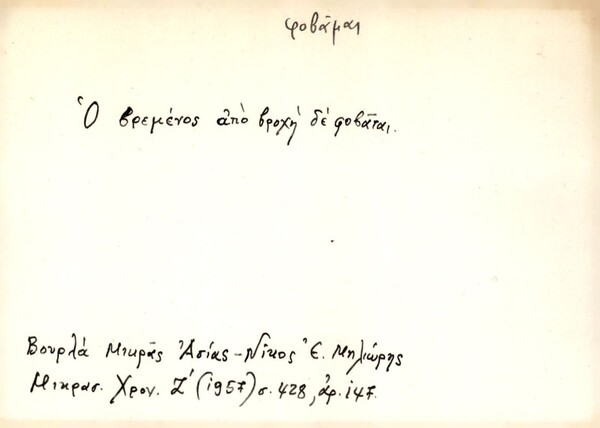 φοβᾶμαι
Ὁ βρεμένος ἀπὸ βροχὴ δὲ φοβᾶται.
Βουρλά Μικρᾶς Ἀσίας - Νῖκος Ἐ. Μηλιώρης
Μικρασ. Χρον. Ζ' (1957) σ. 428, ἀρ. 147.